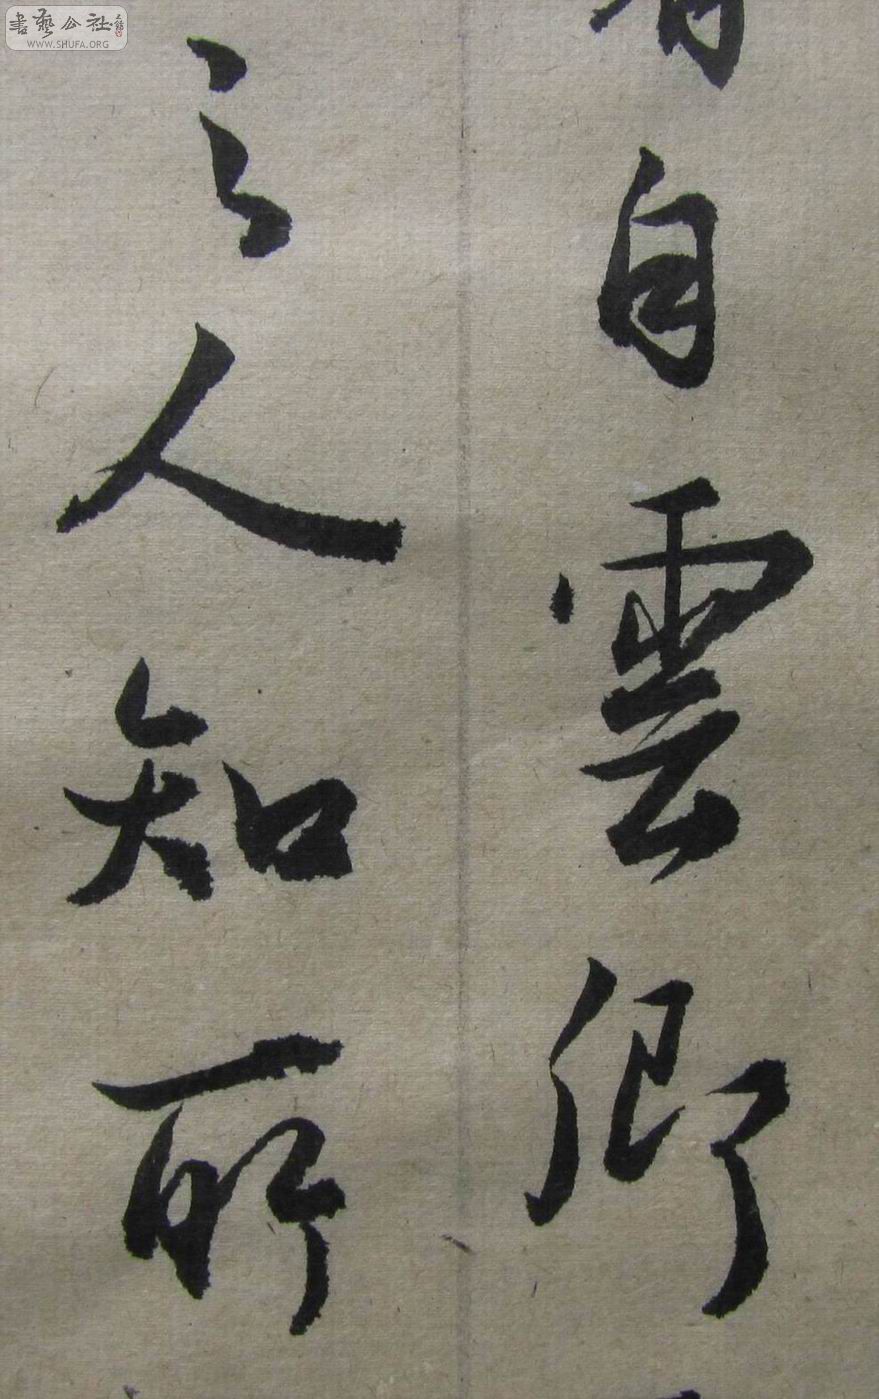 自雲卿
之人知所
書藝公社
WWW.SHUFA.ORG